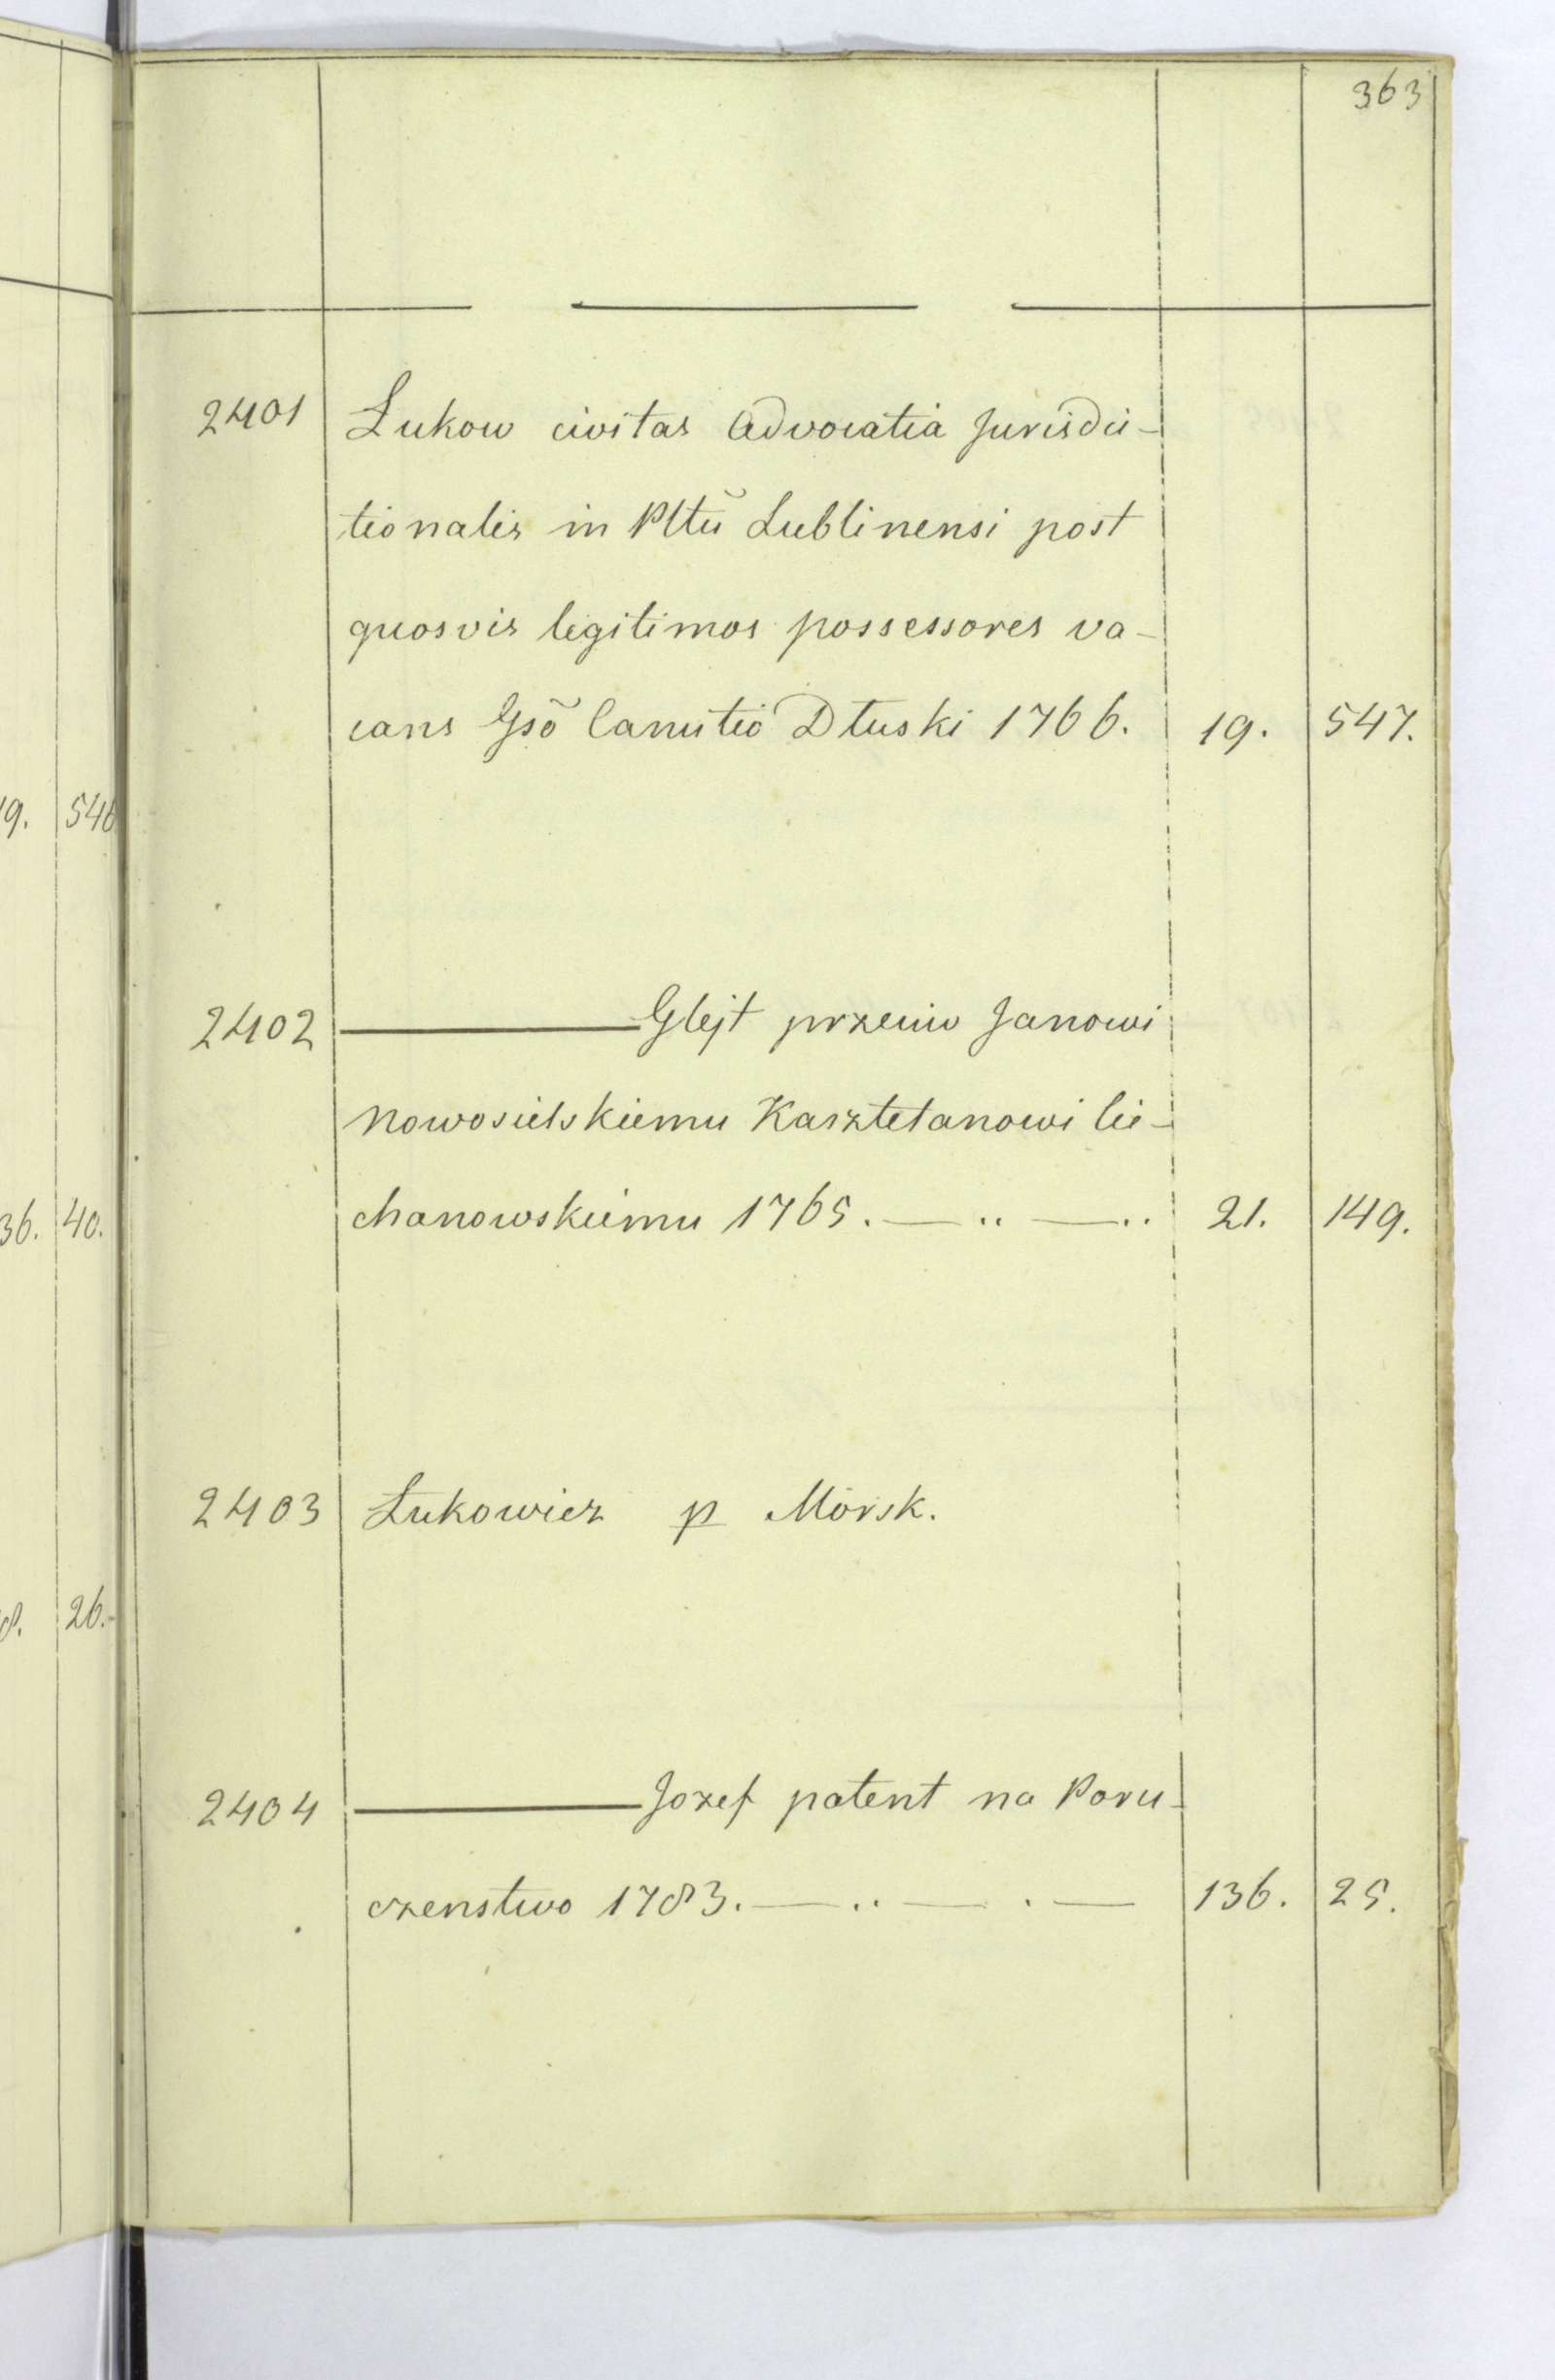 363
2401 Łukow civitas Advocatia Jurisdic-
tionalis in Pltũ Lublinensi post
quosvis legitimos possessores va-
cans Gsõ Canutio Dłuski 1766. 19. 547.
2402 ———— Glejt przeciw Janowi
Nowosielskiemu Kasztelanowi Cie-
chanowskiemu 1765. — .. — .. 21. 149.
2403 Łukowicz p Morsk.
2404 ———— Jozef patent na Poru-
czenstwo 1783. — .. — . — 136. 25.
9. 546
36. 40.
8. 26.